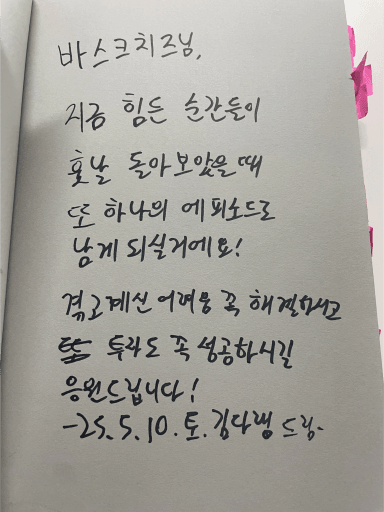 바스크치즈님,
지금 힘든 순간들이
훗날 돌아보았을 때
또 하나의 에피소드로
남게 되실거에요!
겪고계신 어려움 꼭 해결하시고
투자도 꼭 성공하시길
응원드립니다!
-25.5.10.토. 김다랭 드림-